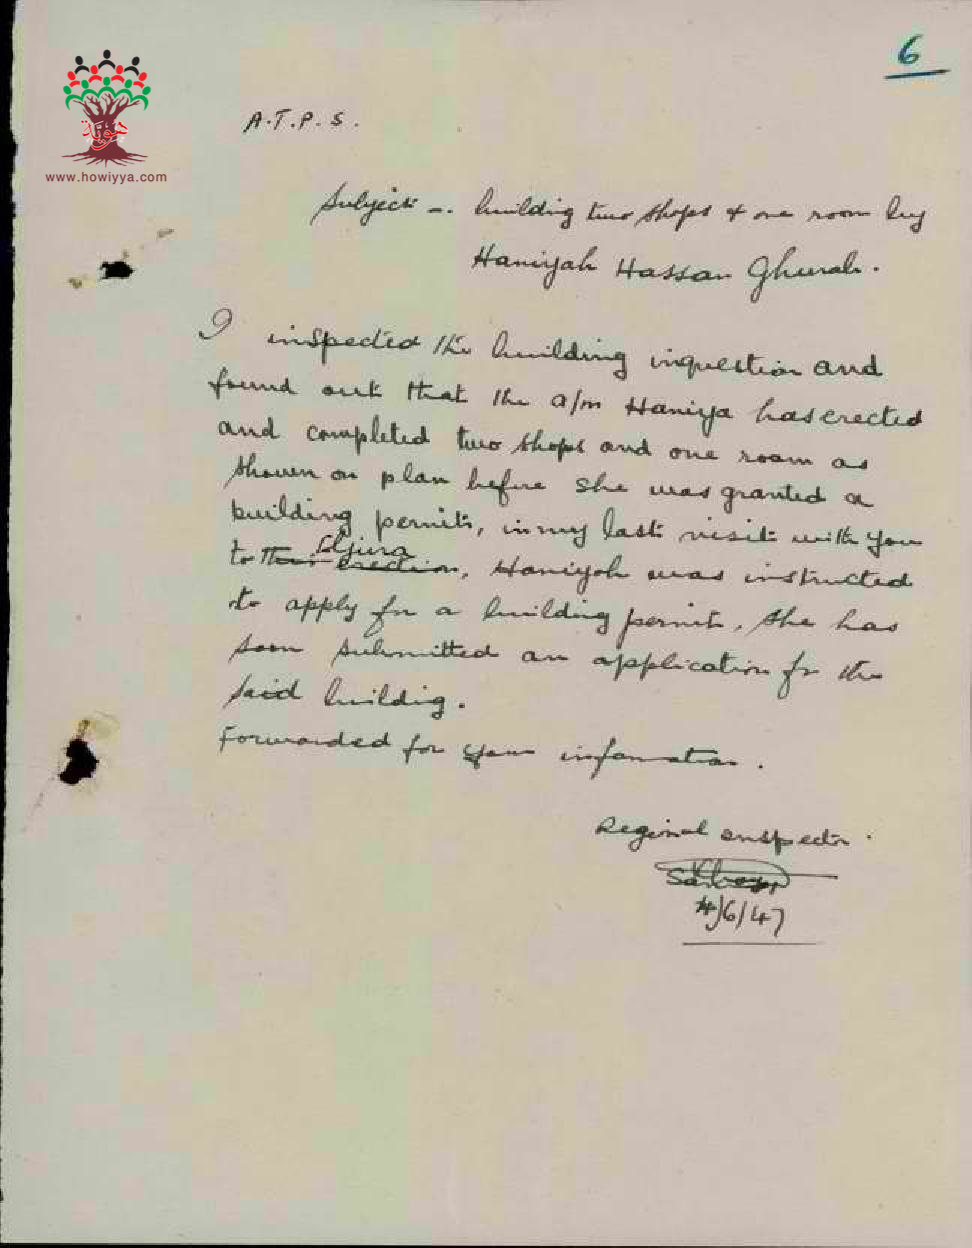 6
www.howiyya.com
A.T.P.S.
Subject -. building two shops & one room by
Haniyah Hassan Ghurab.
I inspected the building inquestion and
found out that the a/m Haniya has erected
and completed two shops and one room as
shown on plan before she was granted a
building permit, in my last visit with you
Eljura
to their erection, Haniyah was instructed
to apply for a building permit. She has
soon submitted an application for the
said building.
Forwarded for your information.
Regional inspector.
4/6/47